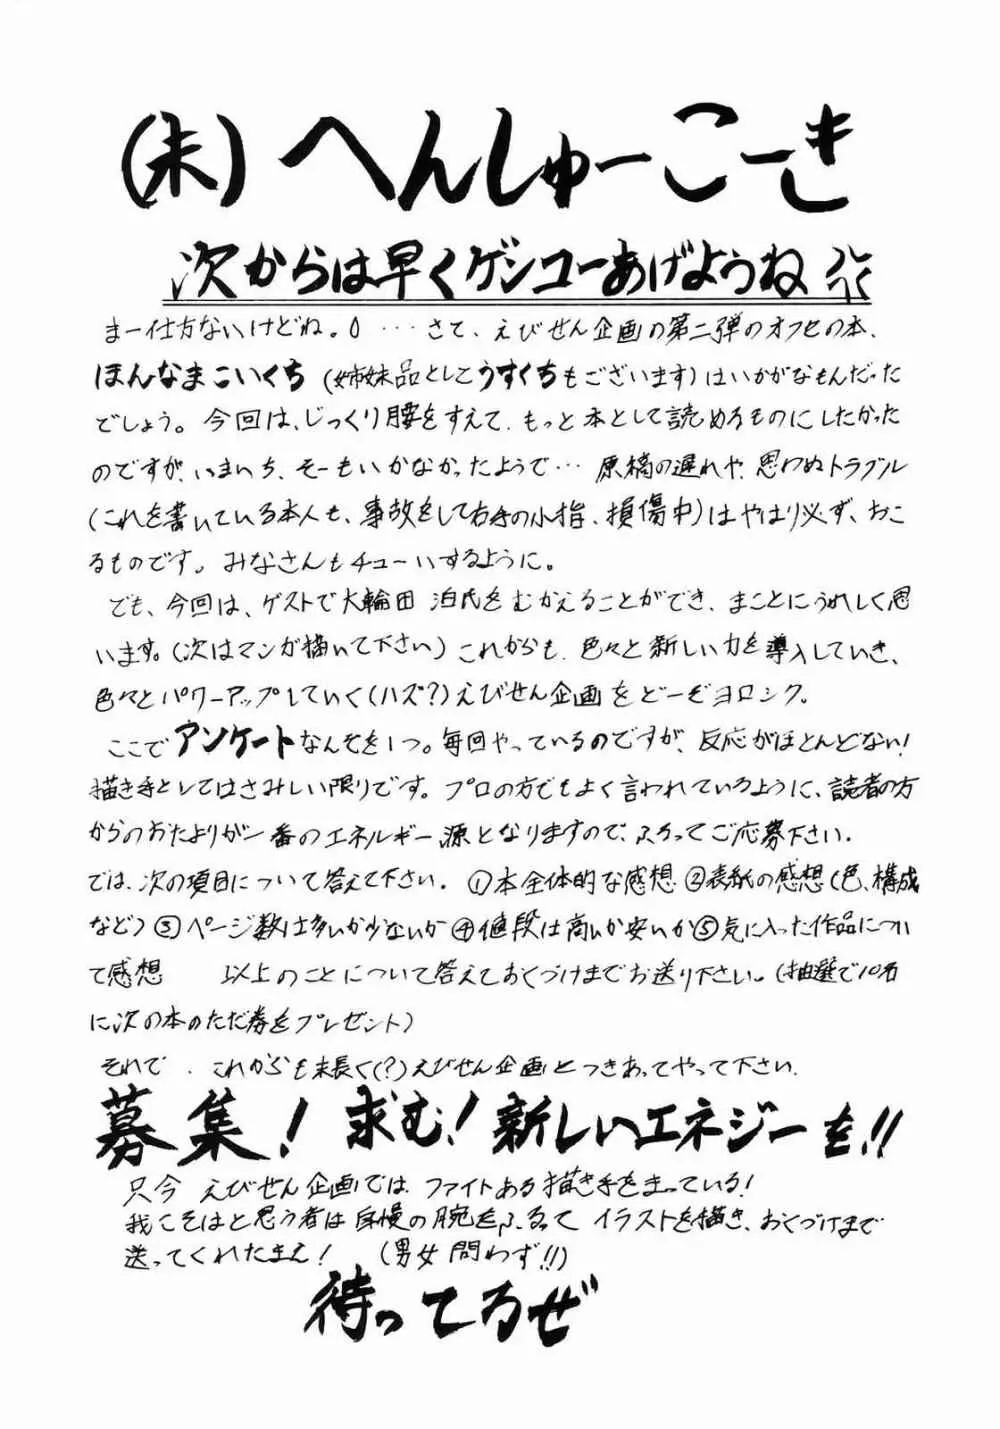 (末)へんしゅーこーき
次からは早くゲンコーあげようね
まー仕方ないけどね。… さて、えびせん企画の第二弾のオフセの本、
ほんなまこいくち(姉妹品としてうすくちもございます)はいかがなもんだった
でしょう。今回は、じっくり腰をすえて、もっと本として読めるものにしたかった
のですが、いまいち、そーもいかなかったようで… 原稿の遅れや、思わぬトラブル
(これを書いている本人も、事故をして右手の小指、損傷中)はやはり必ず、おこ
るものです。みなさんもチューいするように。
でも、今回は、ゲストで大輪田 泊氏をむかえることができ、まことにうれしく思
います。(次はマンガ描いて下さい)これからも、色々と新しい力を導入していき、
色々とパワーアップしていく(ハズ?)えびせん企画をどーぞヨロシク。
ここでアンケートなんぞを1つ。毎回やっているのですが、反応がほとんどない!
描き手としてはさみしい限りです。プロの方でもよく言われているように、読者の方
からのおたよりが一番のエネルギー源となりますので、ふるってご応募下さい.
では、次の項目について答えて下さい. ①本全体的な感想 ②表紙の感想(色、構成
など) ③ページ数は多いか少ないか ④値段は高いか安いか ⑤気に入った作品につい
て感想 以上のことについて答えておくづけまでお送り下さい。(抽選で10名
に次の本のただ券をプレゼント)
それで、これからも末長く(?)えびせん企画とつきあってやって下さい.
募集! 求む! 新しいエネジーを!!
只今 えびせん企画では、ファイトある描き手をまっている!
我こそはと思う者は自慢の腕をふるって イラストを描き、おくづけまで
送ってくれたまえ! (男女問わず!!)
待ってるぜ